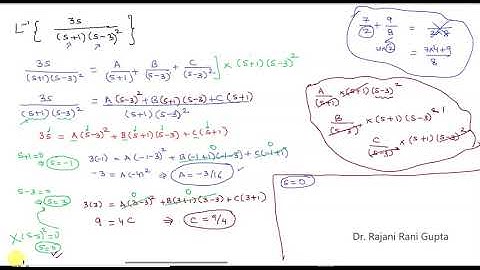 L⁻¹ { 3s / (s+1)(s-3)² }
3s / (s+1)(s-3)² = A/(s+1) + B/(s-3) + C/(s-3)² ] × (s+1)(s-3)²
3s / (s+1)(s-3)² = A(s-3)² + B(s+1)(s-3) + C(s+1) / (s+1)(s-3)²
3s = A(s-3)² + B(s+1)(s-3) + C(s+1)
s+1=0 s=-1 3(-1) = A(-1-3)² + B(-1+1)(-1-3) + C(-1+1)
-3 = A(-4)² ⇒ A = -3/16
s-3=0 s=3 3(3) = A(3-3)² + B(3+1)(3-3) + C(3+1)
9 = 4C ⇒ C = 9/4
(s-3)²=0
7/2 + 9/8 =
7×4+9 / 8
A/(s+1) × (s+1)(s-3)²
B/(s-3) × (s+1)(s-3)²
C/(s-3)² × (s+1)(s-3)²
s=0
Dr. Rajani Rani Gupta